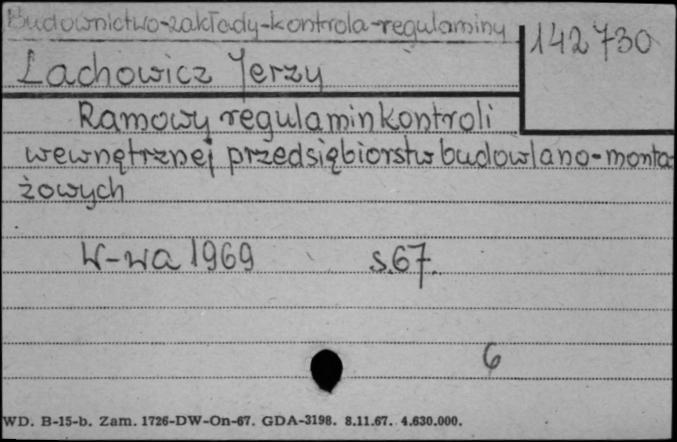 Budownictwo-zakłady-kontrola-regulaminy
142730
Lachowicz Jerzy
Ramowy regulamin kontroli
wewnętrznej przedsiębiorstw budowlano-monta-
żowych
W-wa 1969 s.67.
6
WD. B-15-b. Zam. 1726-DW-On-67. GDA-3198. 8.11.67. 4.630.000.